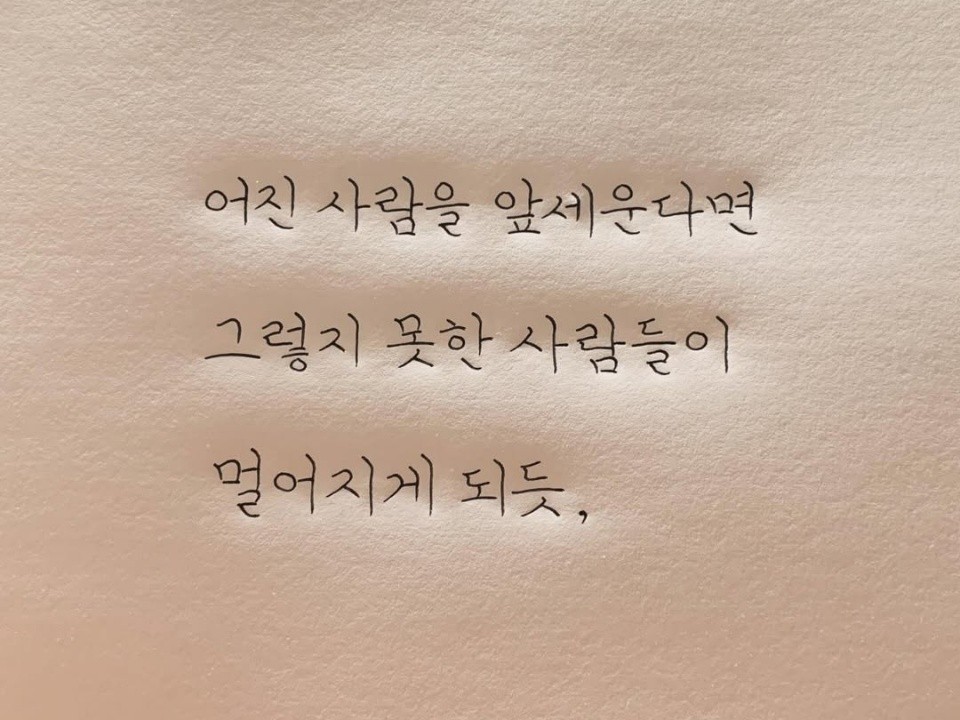 어진 사람을 앞세운다면
그렇지 못한 사람들이
멀어지게 되듯,